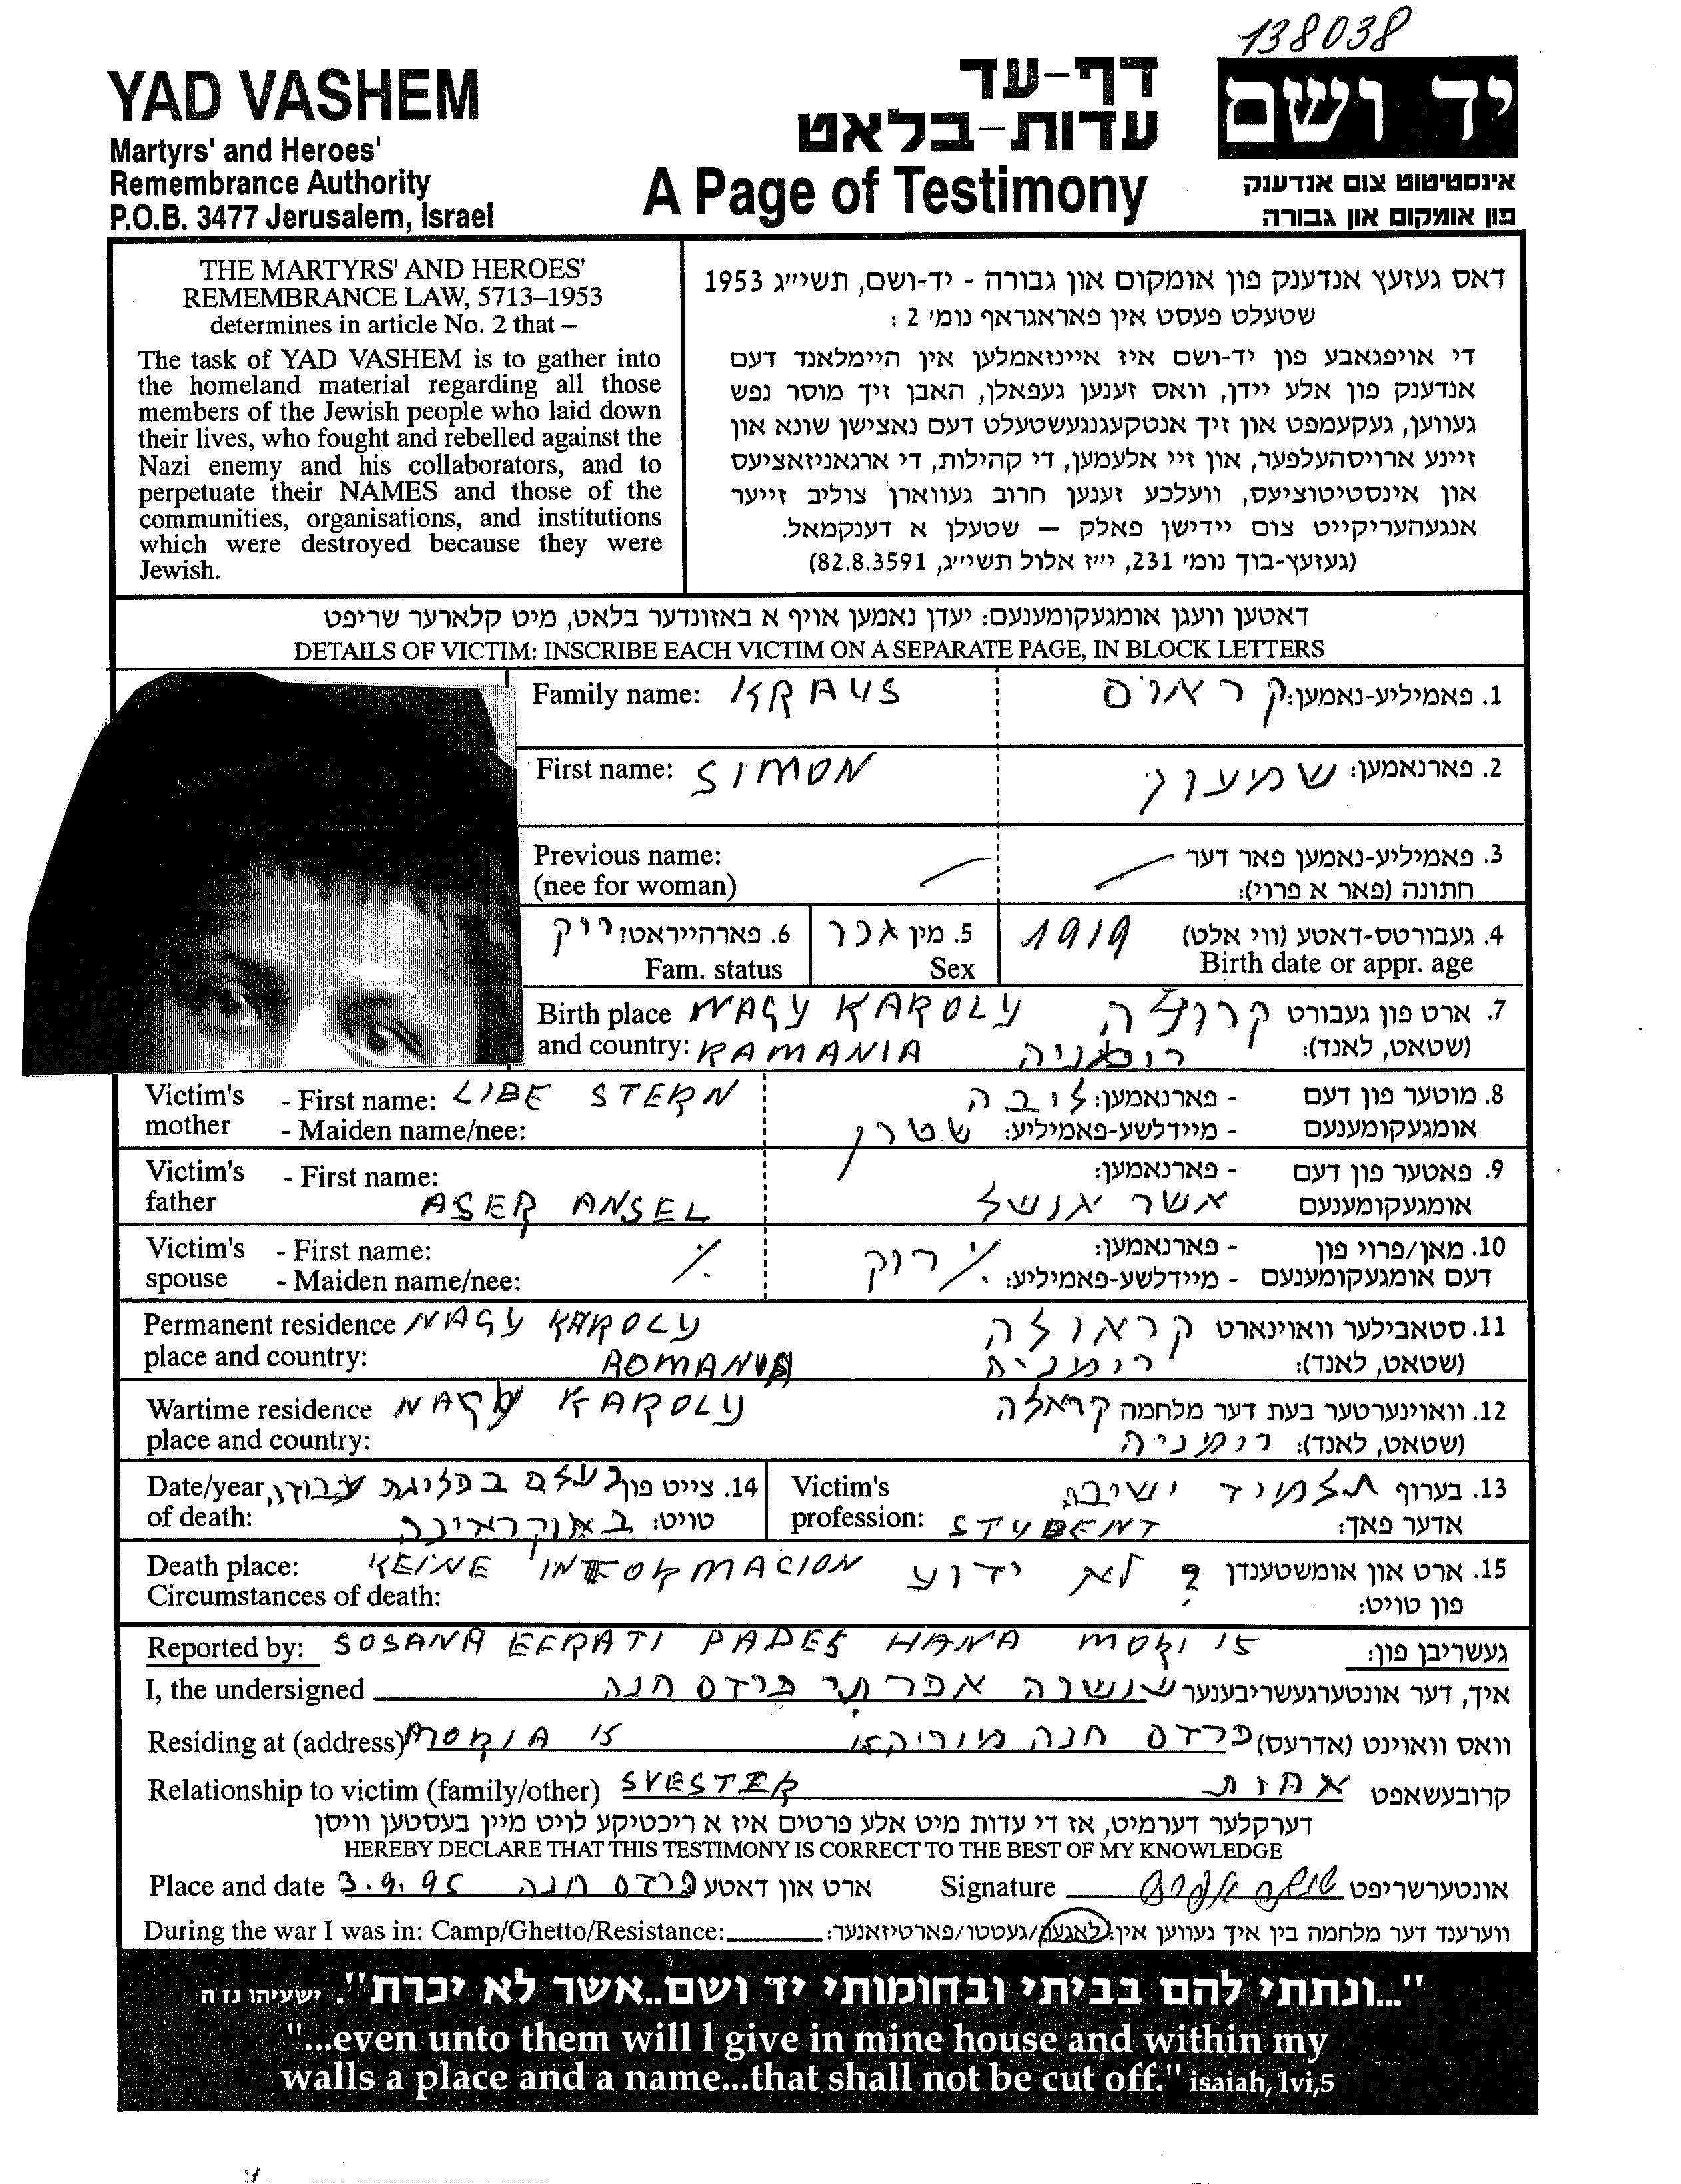 138038
YAD VASHEM
Martyrs' and Heroes'
Remembrance Authority
P.O.B. 3477 Jerusalem, Israel
דף-עד
עדות-בלאט
A Page of Testimony
יד ושם
אינסטיטוט צום אנדענק
פון אומקום און גבורה
THE MARTYRS' AND HEROES'
REMEMBRANCE LAW, 5713–1953
determines in article No. 2 that –
The task of YAD VASHEM is to gather into
the homeland material regarding all those
members of the Jewish people who laid down
their lives, who fought and rebelled against the
Nazi enemy and his collaborators, and to
perpetuate their NAMES and those of the
communities, organisations, and institutions
which were destroyed because they were
Jewish.
דאס געזעץ אנדענק פון אומקום און גבורה - יד-ושם, תשי״ג 1953
שטעלט פעסט אין פאראגראף נומ׳ 2 :
די אויפגאבע פון יד-ושם איז איינזאמלען אין היימלאנד דעם
אנדענק פון אלע יידן, וואס זענען געפאלן, האבן זיך מוסר נפש
געווען, געקעמפט און זיך אנטקעגנגעשטעלט דעם נאצישן שונא און
זיינע ארויסהעלפער, און זיי אלעמען, די קהילות, די ארגאניזאציעס
און אינסטיטוציעס, וועלכע זענען חרוב געווארן צוליב זייער
אנגעהעריקייט צום יידישן פאלק — שטעלן א דענקמאל.
(געזעץ-בוך נומ׳ 231, י״ז אלול תשי״ג, 82.8.3591)
דאטען וועגן אומגעקומענעם: יעדן נאמען אויף א באזונדער בלאט, מיט קלארער שריפט
DETAILS OF VICTIM: INSCRIBE EACH VICTIM ON A SEPARATE PAGE, IN BLOCK LETTERS
Family name: KRAUS
1. פאמיליע-נאמען: קראוס
First name: SIMON
2. פארנאמען: שמעון
Previous name:
(nee for woman)
3. פאמיליע-נאמען פאר דער
חתונה (פאר א פרוי):
6. פארהייראט? רווק
Fam. status
5. מין זכר
Sex
4. געבורטס-דאטע (ווי אלט) 1919
Birth date or appr. age
Birth place NAGY KAROLY
and country: RAMANIA
7. ארט פון געבורט קרולה
(שטאט, לאנד): רומניה
Victim's - First name: LIBE STERN
mother - Maiden name/nee:
8. מוטער פון דעם - פארנאמען: ליבה
אומגעקומענעם - מיידלשע-פאמיליע: שטרן
Victim's - First name:
father ASER ANSEL
9. פאטער פון דעם - פארנאמען:
אומגעקומענעם אשר אנשל
Victim's - First name:
spouse - Maiden name/nee: ./.
10. מאן/פרוי פון - פארנאמען:
דעם אומגעקומענעם - מיידלשע-פאמיליע: ./. רווק
Permanent residence NAGY KAROLY
place and country: ROMANIA
11. סטאבילער וואוינארט קראולה
(שטאט, לאנד): רומניה
Wartime residence NAGY KAROLY
place and country:
12. וואוינערטער בעת דער מלחמה קראולה
(שטאט, לאנד): רומניה
Date/year
of death:
14. צייט פון נעלם בפלוגת עבודה
טויט: באוקראינה
Victim's
profession: STUDENT
13. בערוף תלמיד ישיבה
אדער פאך:
Death place: KEINE INFORMACION
Circumstances of death:
15. ארט און אומשטענדן ? לא ידוע
פון טויט:
Reported by: SOSANA EFRATI PADES HANA MORI 15
געשריבן פון:
I, the undersigned
איך, דער אונטערגעשריבענער שושנה אפרתי פרדס חנה
Residing at (address) MORIA 15
וואס וואוינט (אדרעס) פרדס חנה
Relationship to victim (family/other) SVESTER
קרובעשאפט אחות
דערקלער דערמיט, אז די עדות מיט אלע פרטים איז א ריכטיקע לויט מיין בעסטען וויסן
HEREBY DECLARE THAT THIS TESTIMONY IS CORRECT TO THE BEST OF MY KNOWLEDGE
Place and date 3.9.95 ארט און דאטע פרדס חנה
Signature אונטערשריפט
During the war I was in: Camp/Ghetto/Resistance:
ווערענד דער מלחמה בין איך געווען אין: לאגער/געטטו/פארטיזאנער:
"...ונתתי להם בביתי ובחומותי יד ושם..אשר לא יכרת". ישעיהו נז ה
"...even unto them will I give in mine house and within my
walls a place and a name...that shall not be cut off." isaiah, lvi,5